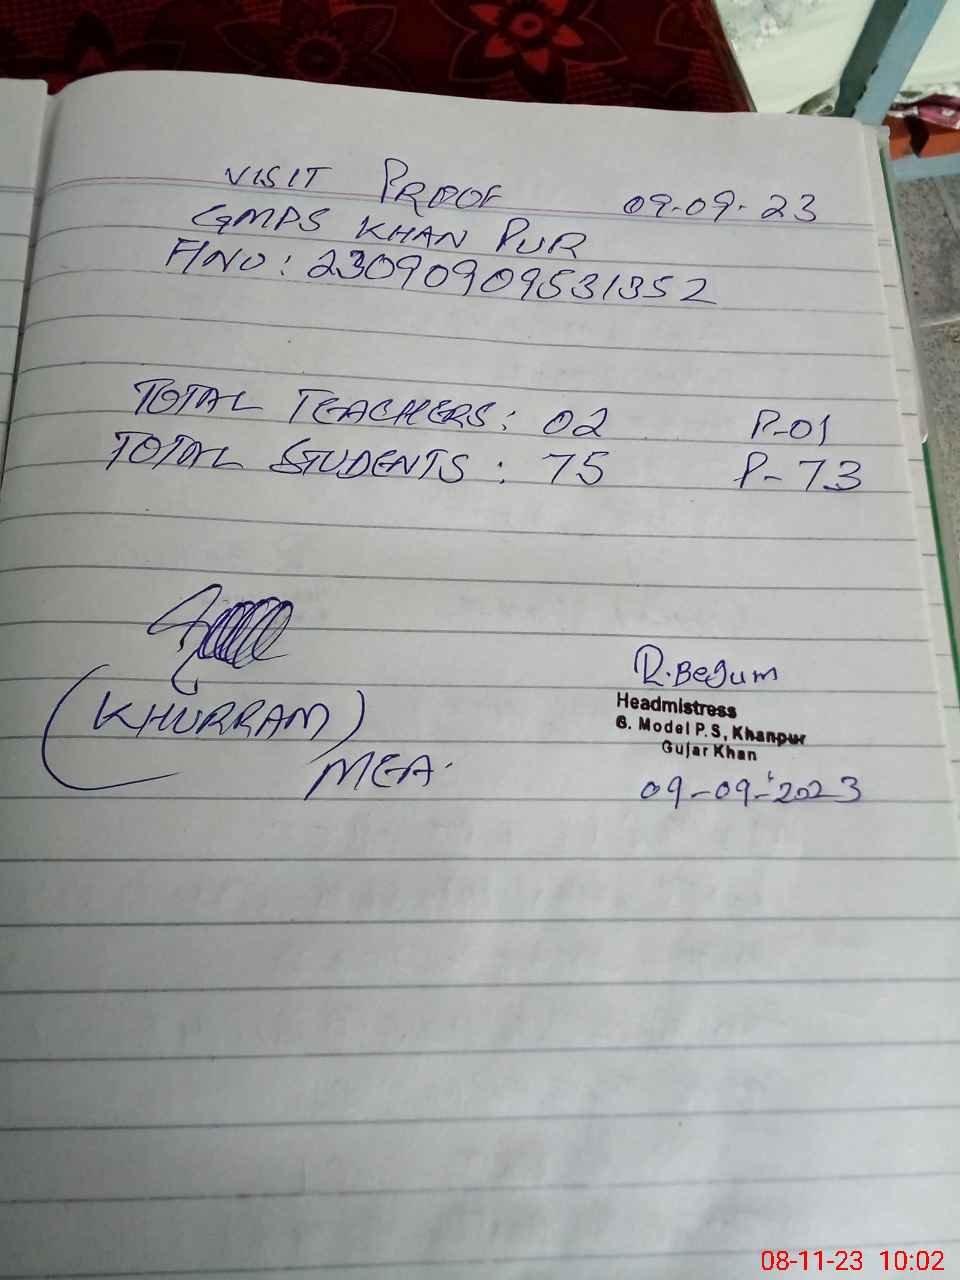 VISIT PROOF 09-09-23
GMPS KHAN PUR
F/NO: 23090909531352
TOTAL TEACHERS: 02 P-01
TOTAL STUDENTS: 75 P-73
(KHURRAM)
MEA.
R.Begum
Headmistress
G. Model P.S, Khanpur
Gujar Khan
09-09-2023
08-11-23 10:02